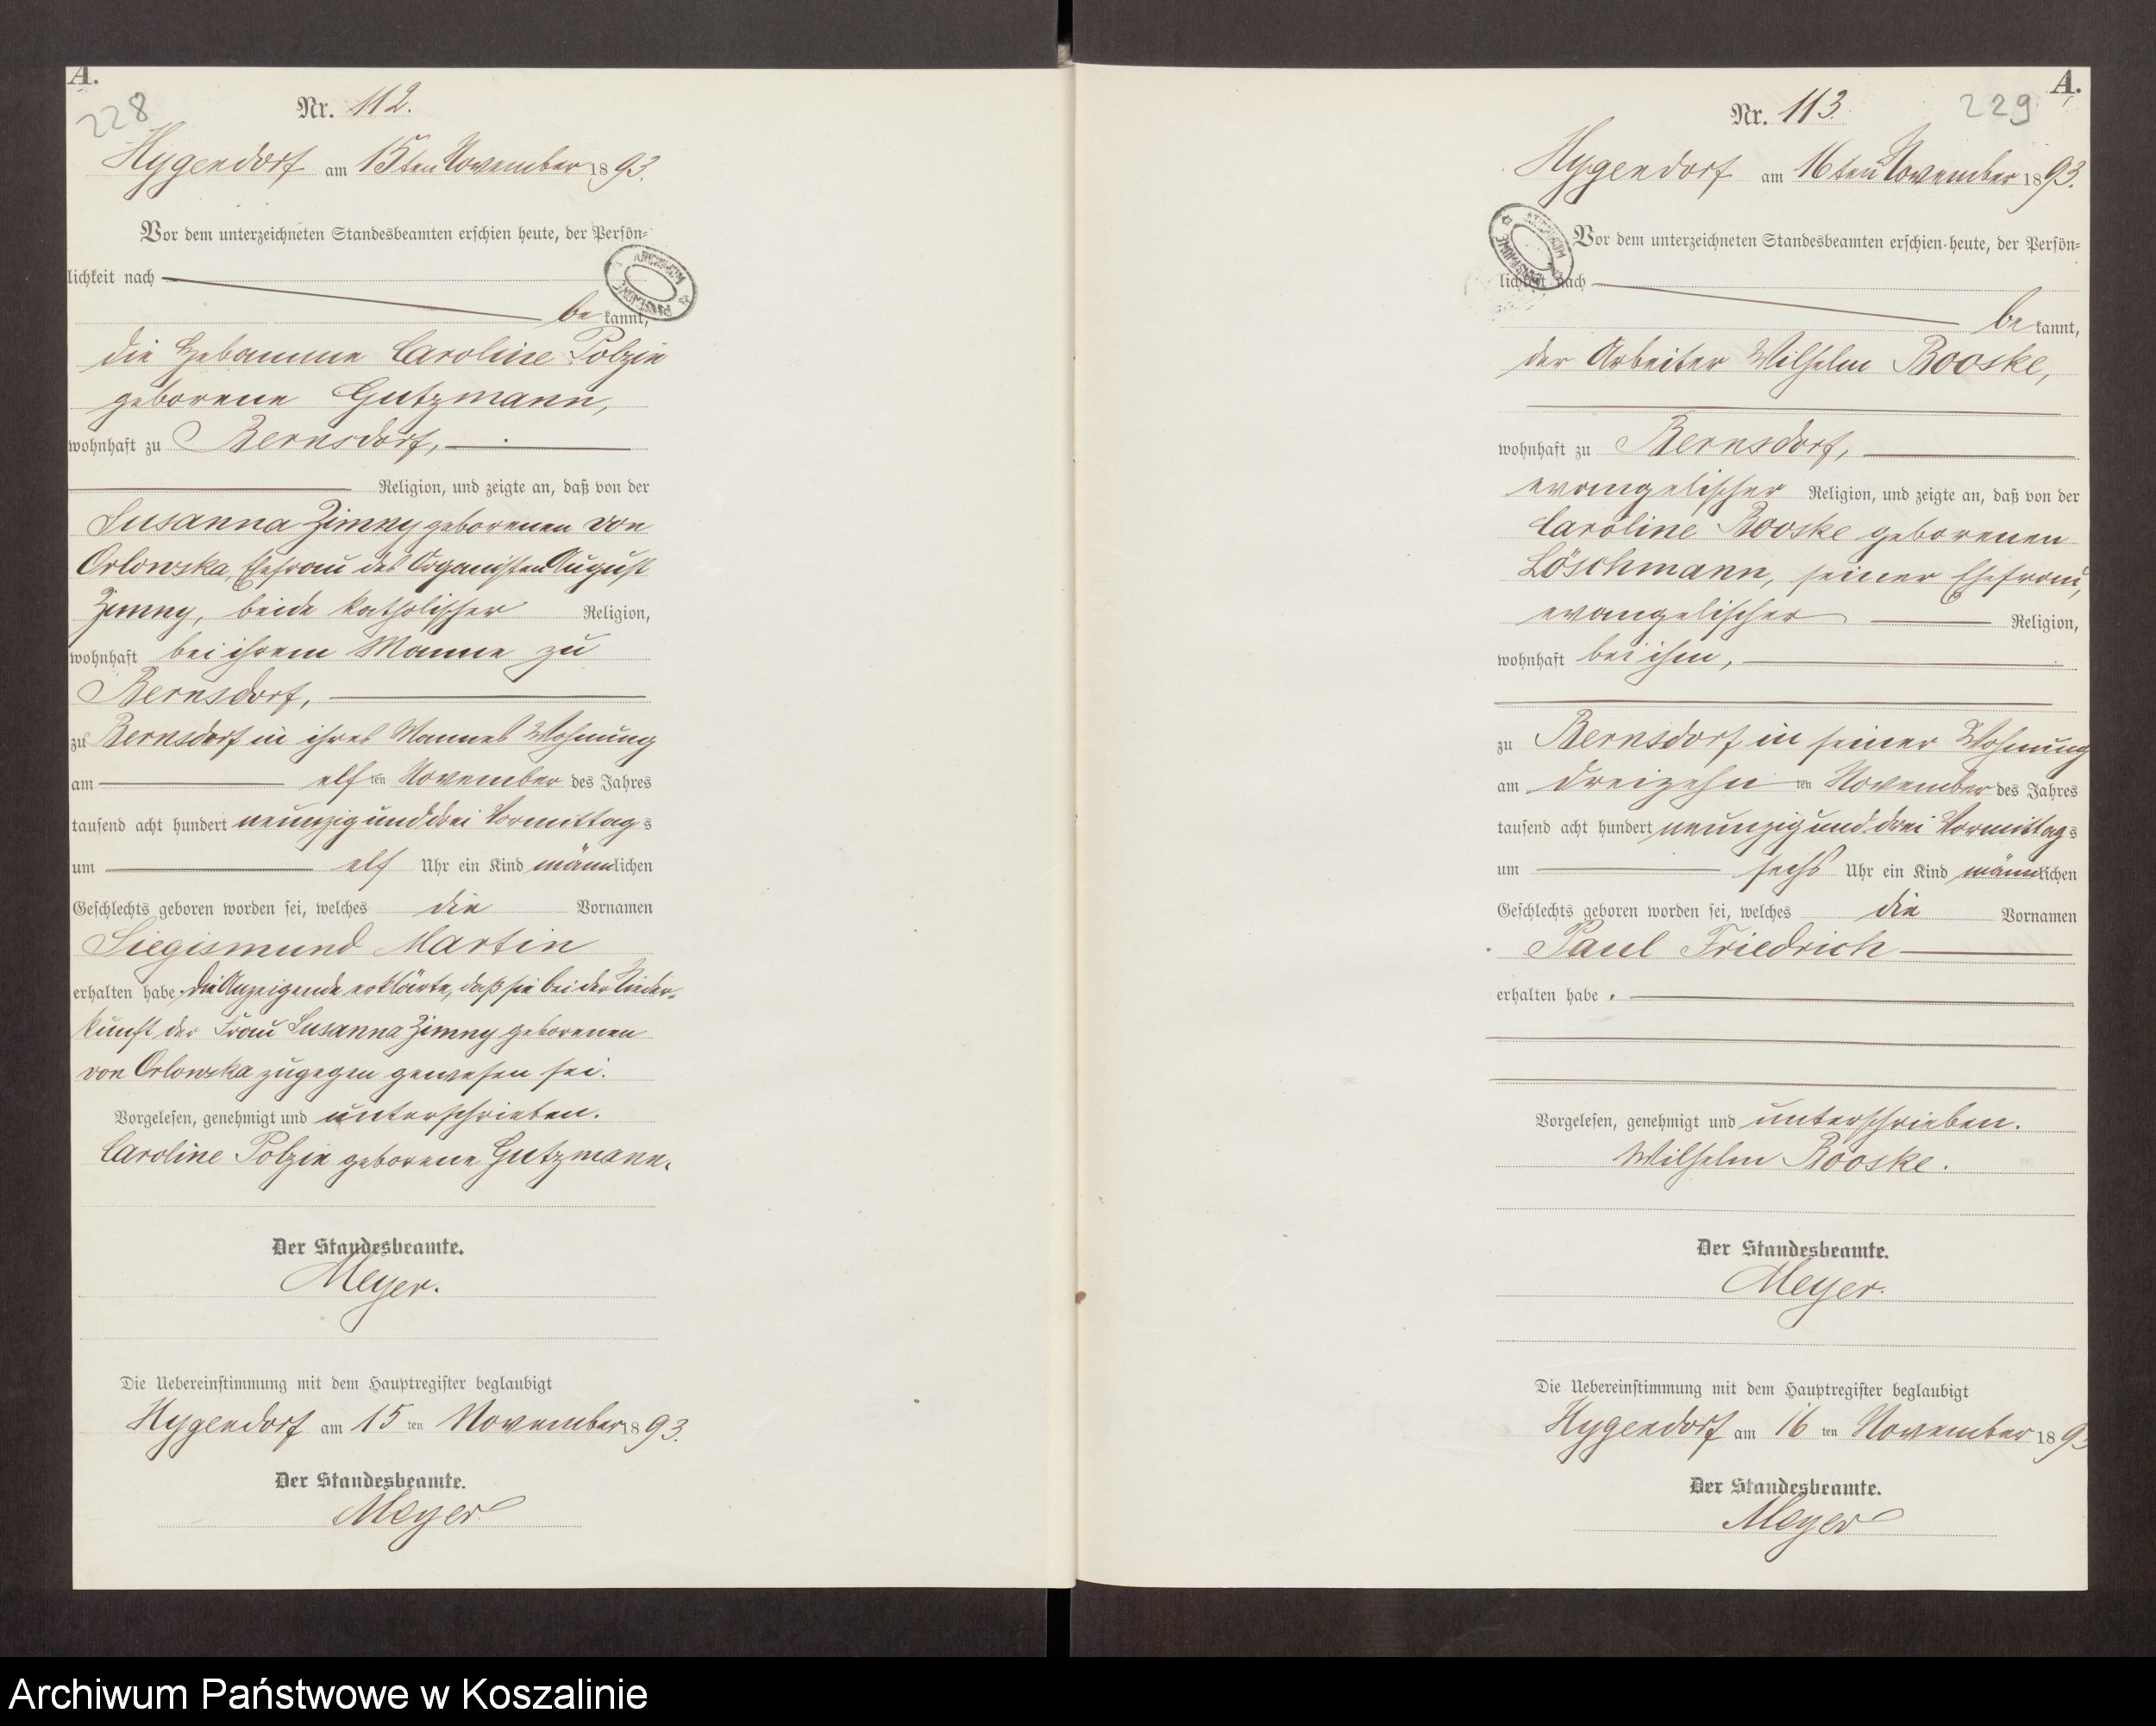 A.
228
Nr. 112.
Hygendorf am 15ten November 1893.
Vor dem unterzeichneten Standesbeamten erschien heute, der Persön-
lichkeit nach
be kannt,
die Hebamme Caroline Polzin
geborene Gutzmann,
wohnhaft zu Bernsdorf,
Religion, und zeigte an, daß von der
Susanna Zimny geborenen von
Orlowska, Ehefrau des Organisten August
Zimny, beide katholischer Religion,
wohnhaft bei ihrem Manne zu
Bernsdorf,
zu Bernsdorf in ihres Mannes Wohnung
am elf ten November des Jahres
tausend acht hundert neunzig und drei Vormittags
um elf Uhr ein Kind männlichen
Geschlechts geboren worden sei, welches die Vornamen
Siegismund Martin
erhalten habe. Die Anzeigende erklärte, daß sie bei der Nieder-
kunft der Frau Susanna Zimny geborenen
von Orlowska zugegen gewesen sei.
Vorgelesen, genehmigt und unterschrieben.
Caroline Polzin geborene Gutzmann.
Der Standesbeamte.
Meyer.
Die Uebereinstimmung mit dem Hauptregister beglaubigt
Hygendorf am 15 ten November 1893.
Der Standesbeamte.
Meyer
A.
229
Nr. 113.
Hygendorf am 16ten November 1893.
Vor dem unterzeichneten Standesbeamten erschien heute, der Persön-
lichkeit nach
be kannt,
der Arbeiter Wilhelm Rooske,
wohnhaft zu Bernsdorf,
evangelischer Religion, und zeigte an, daß von der
Caroline Rooske geborenen
Löschmann, seiner Ehefrau,
evangelischer Religion,
wohnhaft bei ihm,
zu Bernsdorf in seiner Wohnung
am dreizehn ten November des Jahres
tausend acht hundert neunzig und drei Vormittags
um sechs Uhr ein Kind männlichen
Geschlechts geboren worden sei, welches die Vornamen
Paul Friedrich
erhalten habe.
Vorgelesen, genehmigt und unterschrieben.
Wilhelm Rooske.
Der Standesbeamte.
Meyer.
Die Uebereinstimmung mit dem Hauptregister beglaubigt
Hygendorf am 16 ten November 189
Der Standesbeamte.
Meyer
Archiwum Państwowe w Koszalinie